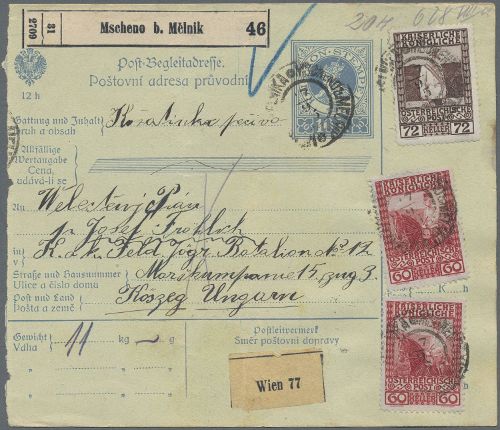 2709
31
Mscheno b. Mělnik 46
Post-Begleitadresse.
Poštovní adresa průvodní
12 h
Gattung und Inhalt
ruh a obsah
Allfällige
Wertangabe
Cena,
udává-li se
Welectěný Pán
p. Josef Fröhlich
K. u. k. Feld Jägr Batalion No 12
Marschkumpanie 15, zug 3
Köszeg Ungarn
An
in
v
Straße und Hausnummer
Ulice a číslo domu
Post und Land
Pošta a země
Gewicht
Váha
11 kg
Postleitvermerk
Směr poštovní dopravy
Wien 77
K h
KAISERLICHE
KÖNIGLICHE
ÖSTERREICHISCHE
POST
72 HELLER 72
KAISERLICHE
KÖNIGLICHE
ÖSTERREICHISCHE
POST
60 HELLER 60
KAISERLICHE
KÖNIGLICHE
ÖSTERREICHISCHE
POST
60 HELLER 60